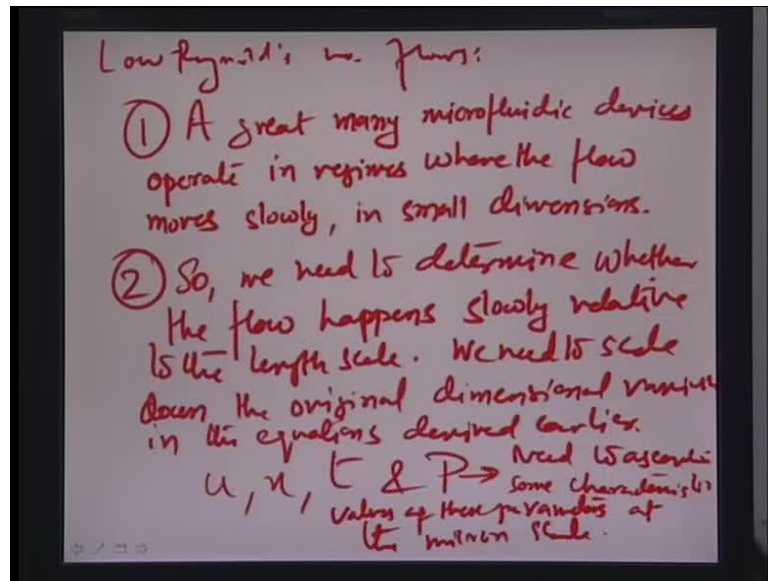 Low Reynold's no. flows:
① A great many microfluidic devices
operate in regimes where the flow
moves slowly, in small dimensions.
② So, we need to determine whether
the flow happens slowly relative
to the length scale. We need to scale
down the original dimensional
in the equations derived earlier.
u, x, t & P → Need to
some characteristic
values of these parameters at
the micron scale.